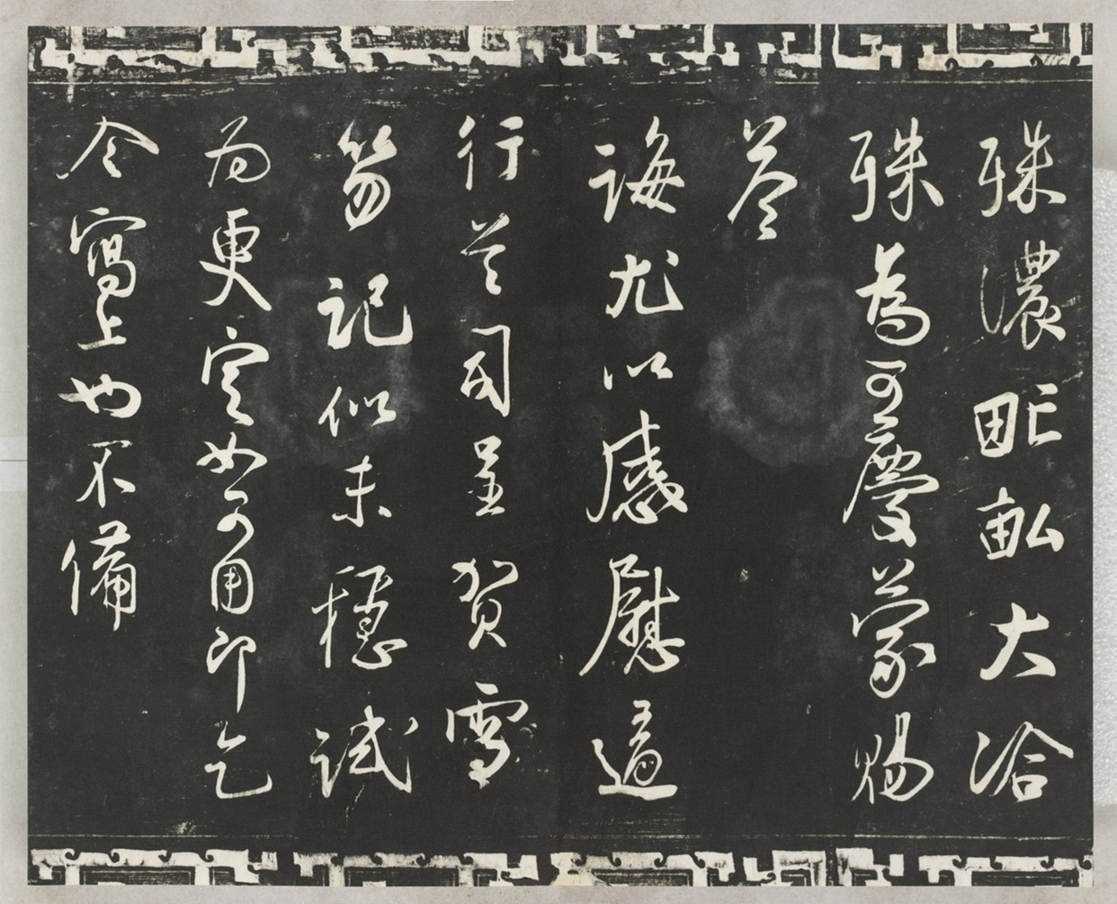 殊濃甿畆大洽
殊為可慶蒙賜
荅
誨尤以感慰適
行首司呈賀雪
笏記似未穩試
為更定如可用即乞
令寫上也不備